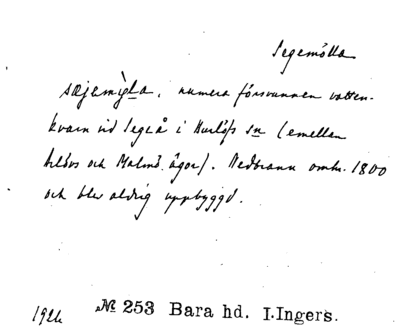 Segemölla
sæjemỳla, numera försvunnen vatten-
kvarn vid Segeå i Burlövs sn (emellan
Arlövs och Malmö ägor). Nedbrann omkr. 1800
och blev aldrig uppbyggd.
1924 № 253 Bara hd. I.Ingers.